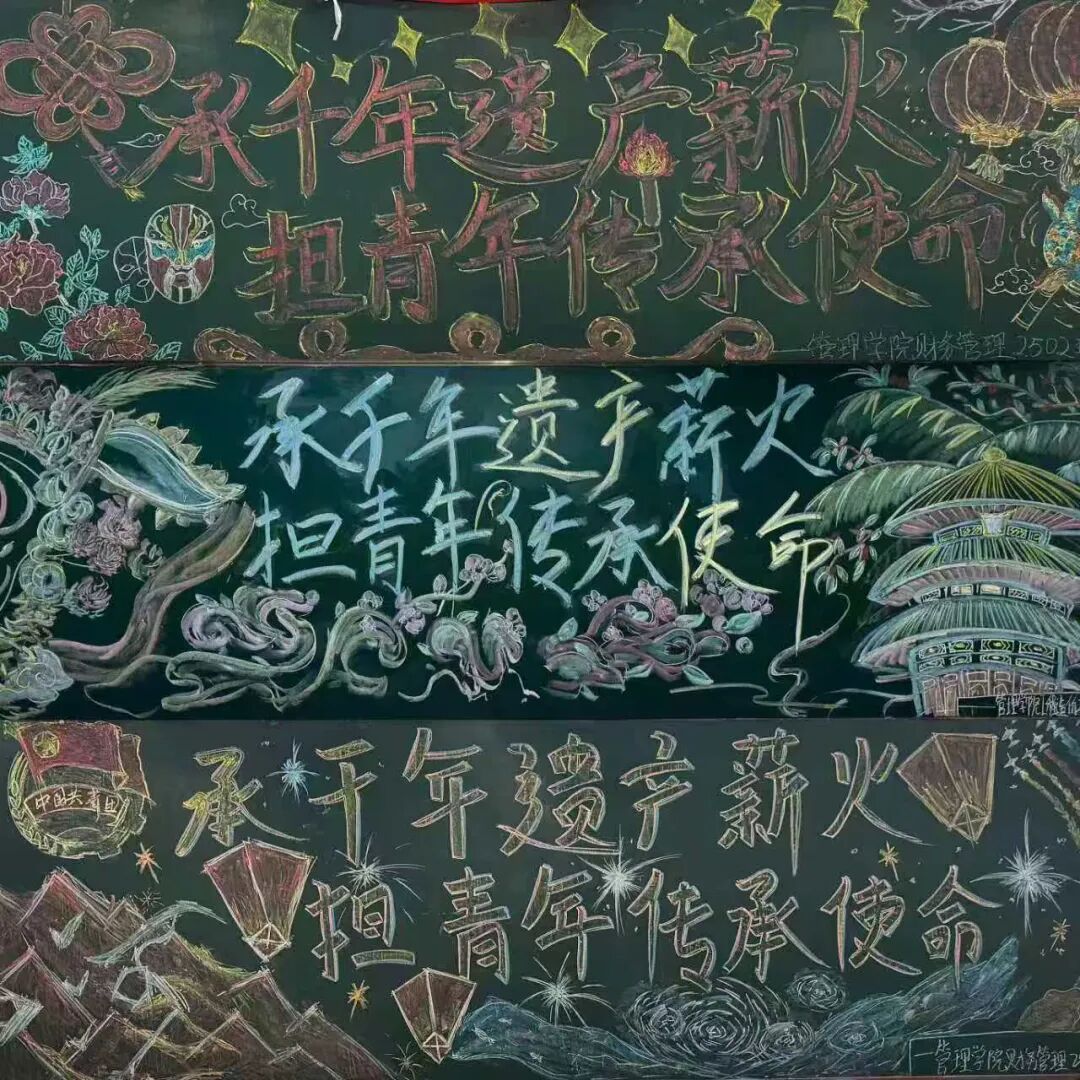 承千年遗产薪火
担青年传承使命
管理学院财务管理2502
承千年遗产薪火
担青年传承使命
管理学院
中国共青团
承千年遗产薪火
担青年传承使命
管理学院财务管理2